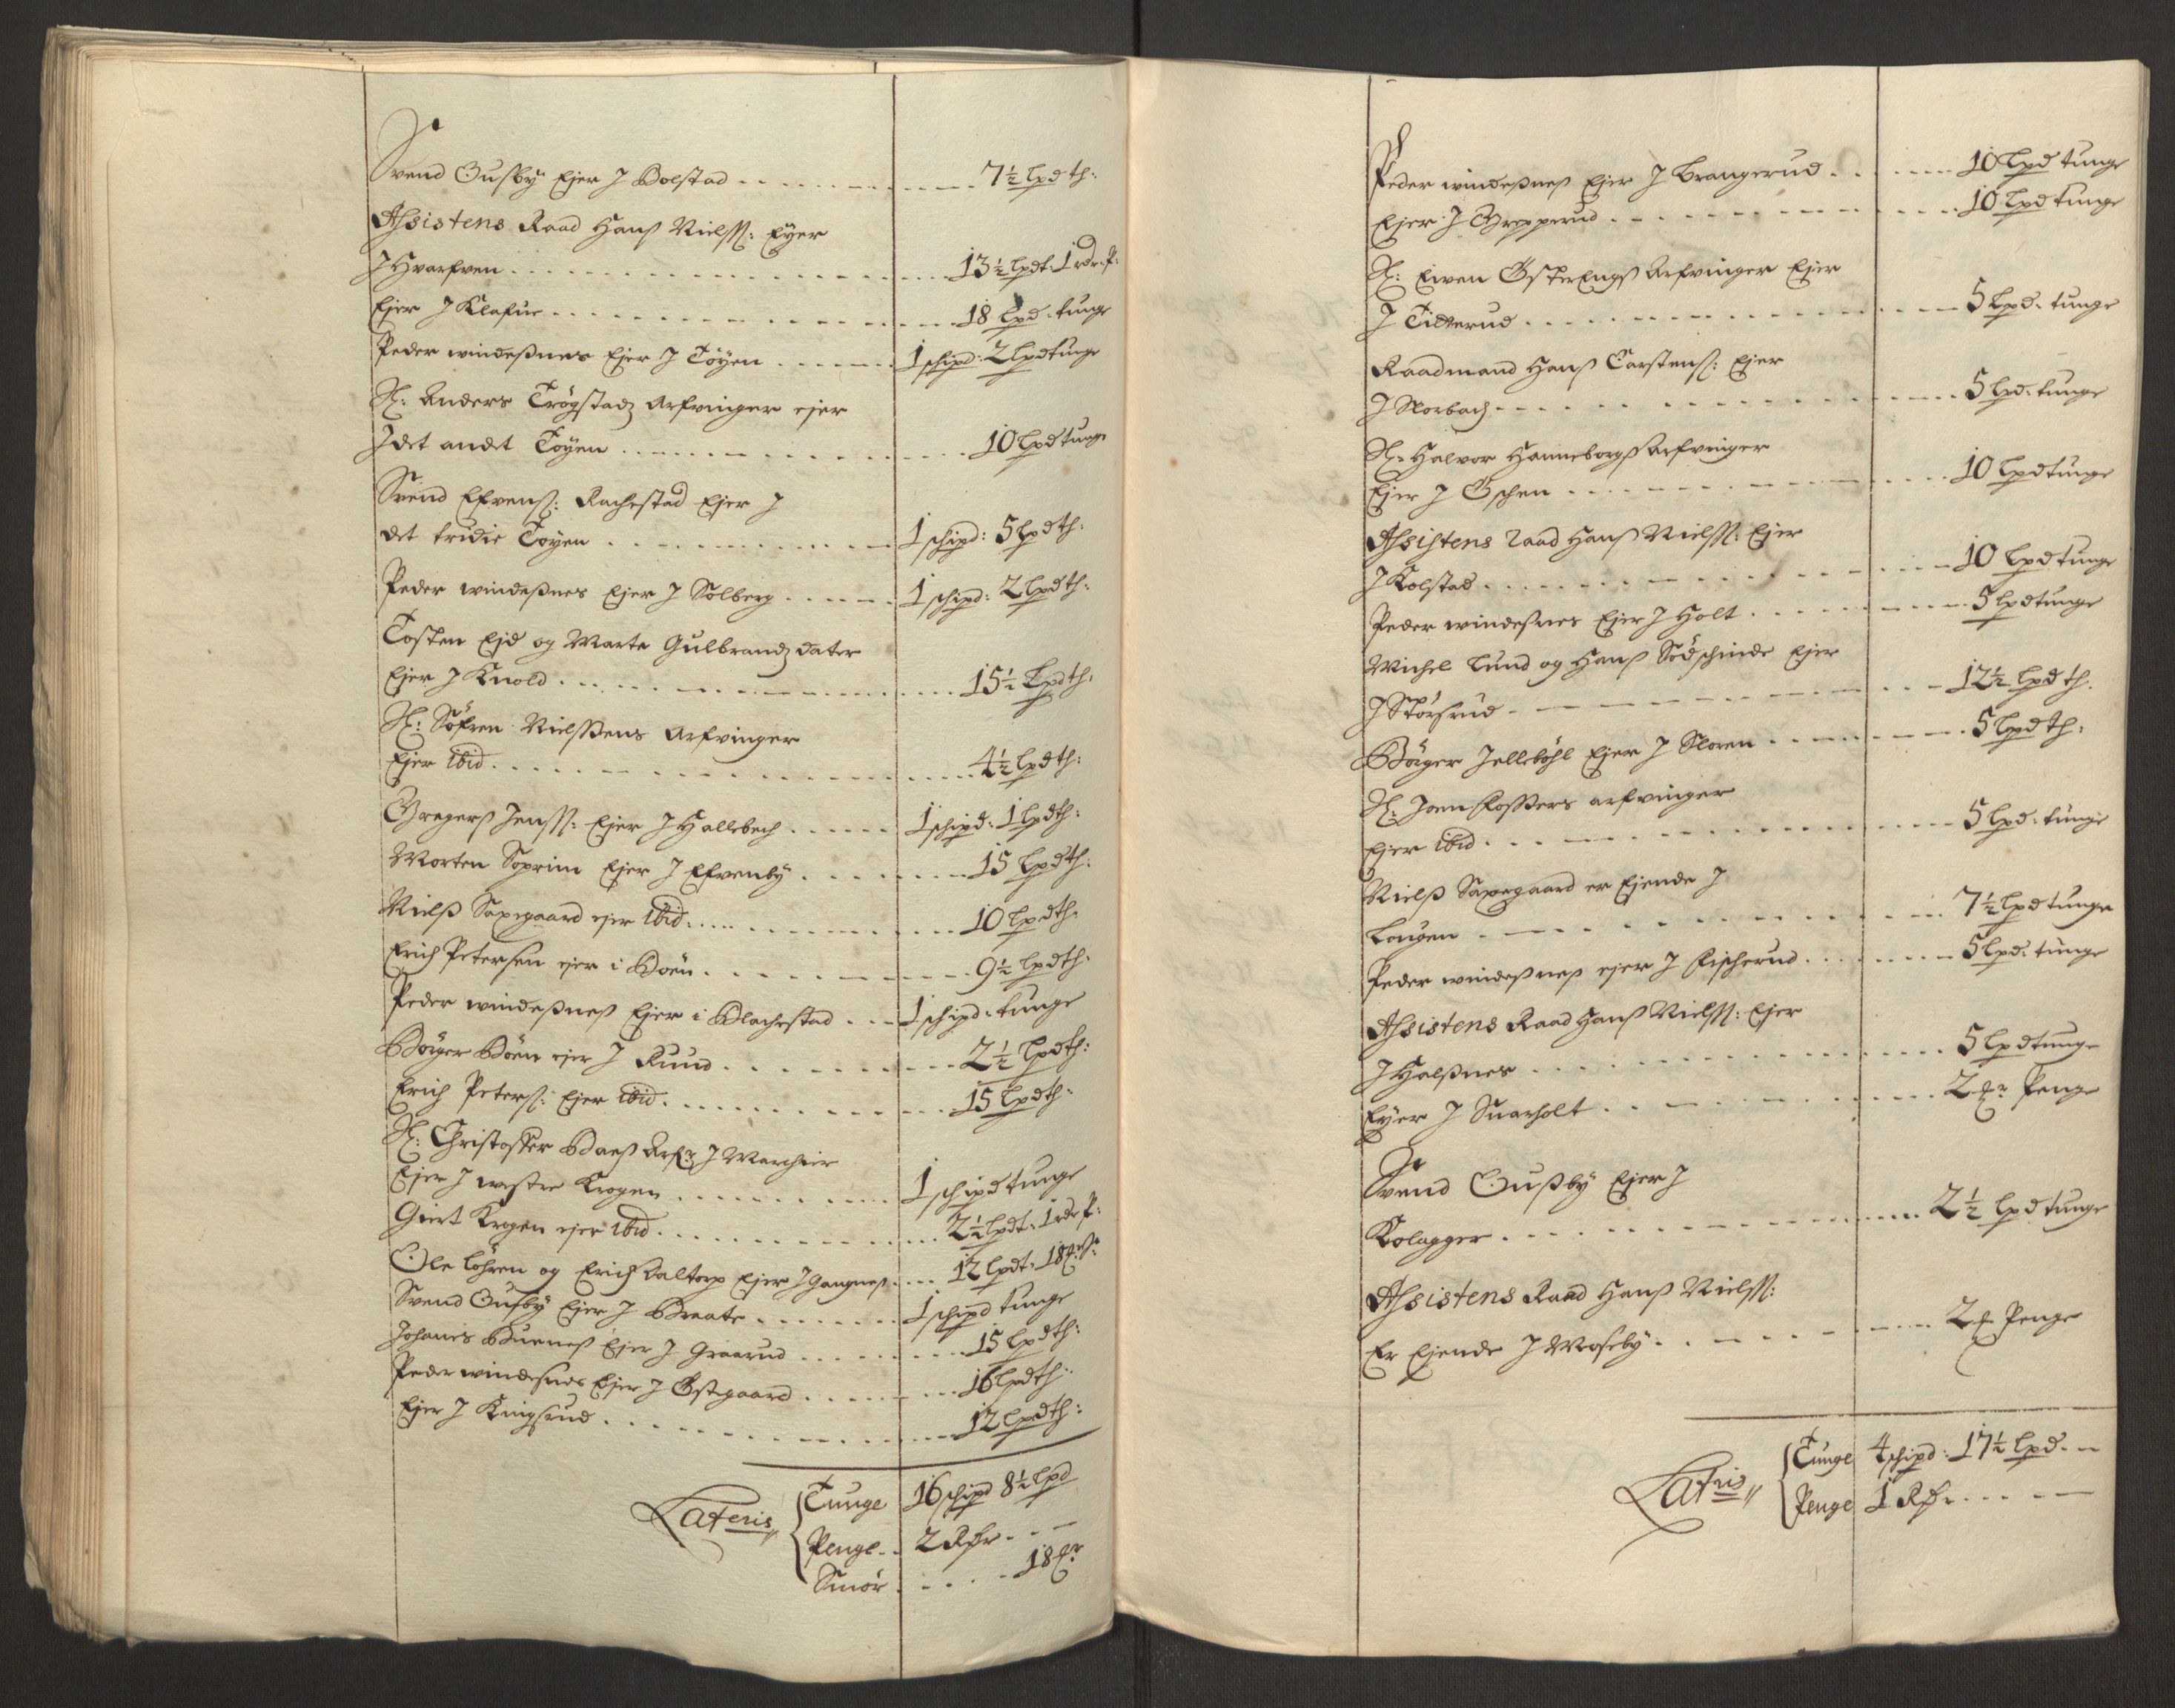 Svend Ousby Ejer J Bolstad . . . . 7½ lpd th:
Assistens Raad Hanß Nielss: Eyer
J Hvarfven . . . . 13½ lpdt: 1 rdr. P:
Ejer J Klafue . . . . 18 lpd. tunge
Peder windeßnes Ejer J Töyen . . . . 1 schipd: 2 lpd tunge
Sl: Anders Trögstadz Arfvinger ejer
J det andet Töyen . . . . 10 lpd tunge
Svend Efvenß: Rachestad Ejer J
det tridie Töyen . . . . 1 schipd: 5 lpd th:
Peder windeßnes Ejer J Solberg . . . . 1 schipd: 2 lpd th:
Tosten Ejd og Marte Gulbrandz dater
Ejer J Knold . . . . 15½ lpd th:
Sl: Söfren Nielßens Arfvinger
Ejer ibid . . . . 4½ lpd th:
Gregerß Jenss: Ejer J Hallebech . . . . 1 schipd: 1 lpd th:
Morten Soprim Ejer J Efvenby . . . . 15 lpd th:
Nielß Saxegaard ejer ibid . . . . 10 lpd th:
Erich Petersen ejer i Boen . . . . 9½ lpd th:
Peder windeßneß Ejer i Blachestad . . . 1 schipd: tunge
Börger Böen ejer J Ruud . . . . 2½ lpd th:
Erich Peterß: Ejer ibid . . . . 15 lpd th:
Sl: Christoffer Baeß Arf: J Marchier
Ejer J westre Krogen . . . . 1 schipd tunge
Giert Krogen ejer ibid . . . . 2½ lpdt: 1 rdr P:
Ole Löhren og Erich Daltorp Ejer J Gangneß . . . 12 lpdt: 18
Svend Ousby Ejer J Braate . . . . 1 schipd tunge
Johanis Bueneß Ejer J Graarud . . . . 15 lpd th:
Peder windesnes Ejer J Östgaard . . . . 16 lpd th:
Ejer J Kingsrud . . . . 12 lpd th:
Lateris
Tunge 16 schipd 8½ lpd
Penge . . 2 Rdr . . .
Smör . . . . 18
Peder windeßneß Ejer J Brangerud . . . . 10 lpd tunge
Ejer J Grepperud . . . . 10 lpd tunge
Sl: Even Österengß Arfvinger Ejer
J Titterud . . . . 5 lpd. tunge
Raadmand Hanß Carstenß: Ejer
J Norbach . . . . 5 lpd. tunge
Sl: Halvor Hanneborgß Arfvinger
Ejer J Öschen . . . . 10 lpd tunge
Assistens Raad Hanß Nielss: Ejer
J Kolstad . . . . 10 lpd tunge
Peder windesnes Ejer J Holt . . . . 5 lpd tunge
Michel Lund og Hanß Södschinde Ejer
J Störsrud . . . . 12½ lpd th.
Börger Jelleböhl Ejer J Sloren . . . . 5 lpd th:
Sl: Joen Foßers arfvinger
Ejer ibid . . . . 5 lpd. tunge
Nielß Saxegaard er Ejende J
Laugen . . . . 7½ lpd tunge
Peder windeßneß ejer J Fischerud . . . . 5 lpd: tunge
Assistens Raad Hanß Nielss: Ejer
J Halßnes . . . . 5 lpd tunge
Eyer J Suarholt . . . . 2 Penge
Svend Oußby Ejer J
Kolagger . . . . 2½ lpd tunge
Assistens Raad Hanß Nielss:
Er Ejende J Moseby . . . . 2 Penge
Lateris
Tunge 4 schipd: 17½ lpd. . .
Penge 1 Rdr . . . .